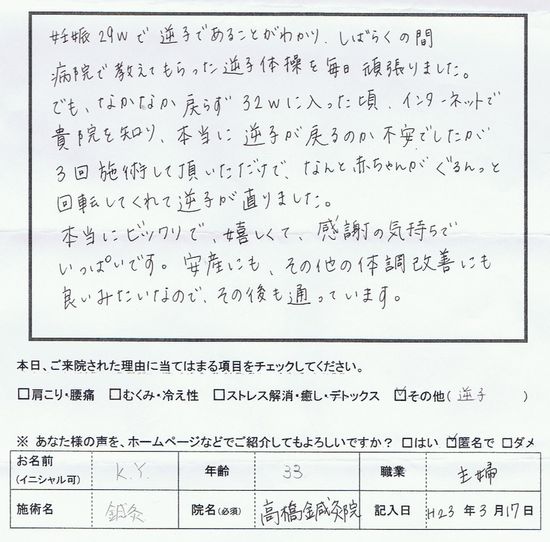 妊娠29Wで逆子であることがわかり、しばらくの間
病院で教えてもらった逆子体操を毎日頑張りました。
でも、なかなか戻らず32Wに入った頃、インターネットで
貴院を知り、本当に逆子が戻るのか不安でしたが
3回施術して頂いただけで、なんと赤ちゃんがぐるんっと
回転してくれて逆子が直りました。
本当にビックリで、嬉しくて、感謝の気持ちで
いっぱいです。安産にも、その他の体調改善にも
良いみたいなので、その後も通っています。
本日、ご来院された理由に当てはまる項目をチェックしてください。
□肩こり・腰痛 □むくみ・冷え性 □ストレス解消・癒し・デトックス ☑その他(逆子)
※ あなた様の声を、ホームページなどでご紹介してもよろしいですか？ □はい ☑匿名で □ダメ
お名前 (イニシャル可) K.Y. 年齢 33 職業 主婦
施術名 鍼灸 院名(必須) 高橋鍼灸院 記入日 H23年3月17日